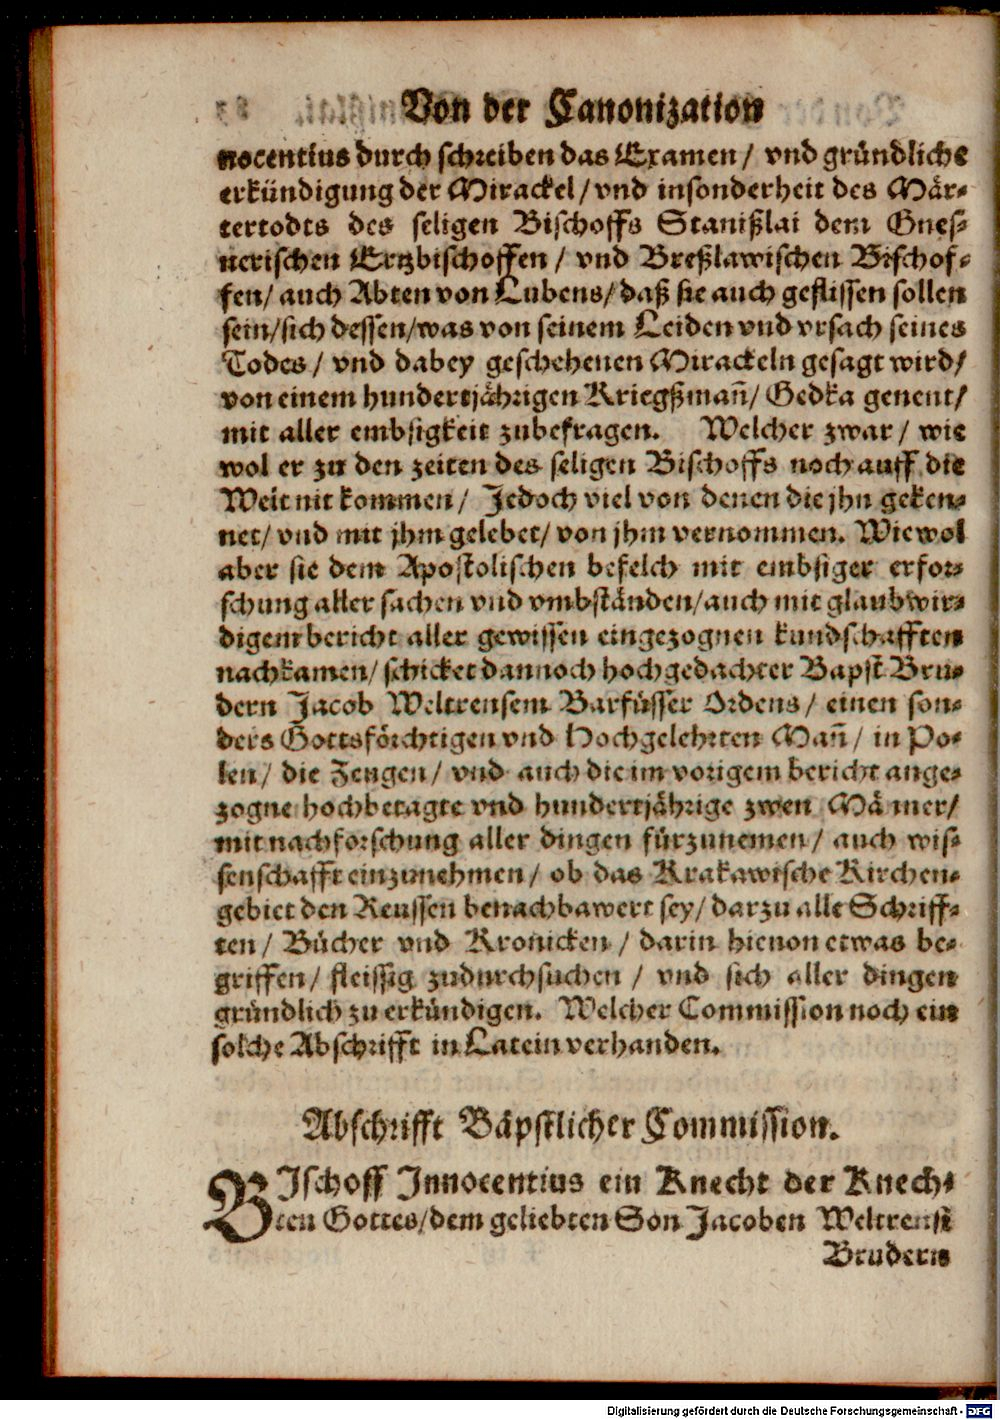 Von der Canonization
nocentius durch schreiben das Examen / vnd gründliche
erkündigung der Mirackel / vnd insonderheit des Mär-
tertodts des seligen Bischoffs Stanißlai dem Gnes-
nerischen Ertzbischoffen / vnd Breßlawischen Bischof-
fen / auch Abten von Lubens / daß sie auch geflissen sollen
sein / sich dessen / was von seinem Leiden vnd vrsach seines
Todes / vnd dabey geschehenen Mirackeln gesagt wird /
von einem hundertjährigen Kriegßmañ / Gedka genent /
mit aller embsigkeit zubefragen. Welcher zwar / wie
wol er zu den zeiten des seligen Bischoffs noch auff die
Welt nit kommen / Jedoch viel von denen die jhn geken-
net / vnd mit jhm gelebet / von jhm vernommen. Wiewol
aber sie dem Apostolischen befelch mit embsiger erfor-
schung aller sachen vnd vmbständen / auch mit glaubwir-
digem bericht aller gewissen eingezognen kundschafften
nachkamen / schicket dannoch hochgedachter Bapst Bru-
dern Jacob Weltrensem Barfüsser Ordens / einen son-
ders Gottsförchtigen vnd Hochgelehrten Mañ / in Po-
len / die Zeugen / vnd auch die im vorigem bericht ange-
zogne hochbetagte vnd hundertjährige zwen Mä mer /
mit nachforschung aller dingen fürzunemen / auch wis-
senschafft einzunehmen / ob das Krakawische Kirchen-
gebiet den Reussen benachbawert sey / darzu alle Schriff-
ten / Bücher vnd Kronicken / darin hieuon etwas be-
griffen / fleissig zudurchsuchen / vnd sich aller dingen
gründlich zu erkündigen. Welcher Commission noch ein
solche Abschrifft in Latein verhanden.
Abschrifft Bäpstlicher Commission.
BIschoff Innocentius ein Knecht der Knech-
ten Gottes / dem geliebten Son Jacoben Weltrensi
Brudern
Digitalisierung gefördert durch die Deutsche Forschungsgemeinschaft - DFG